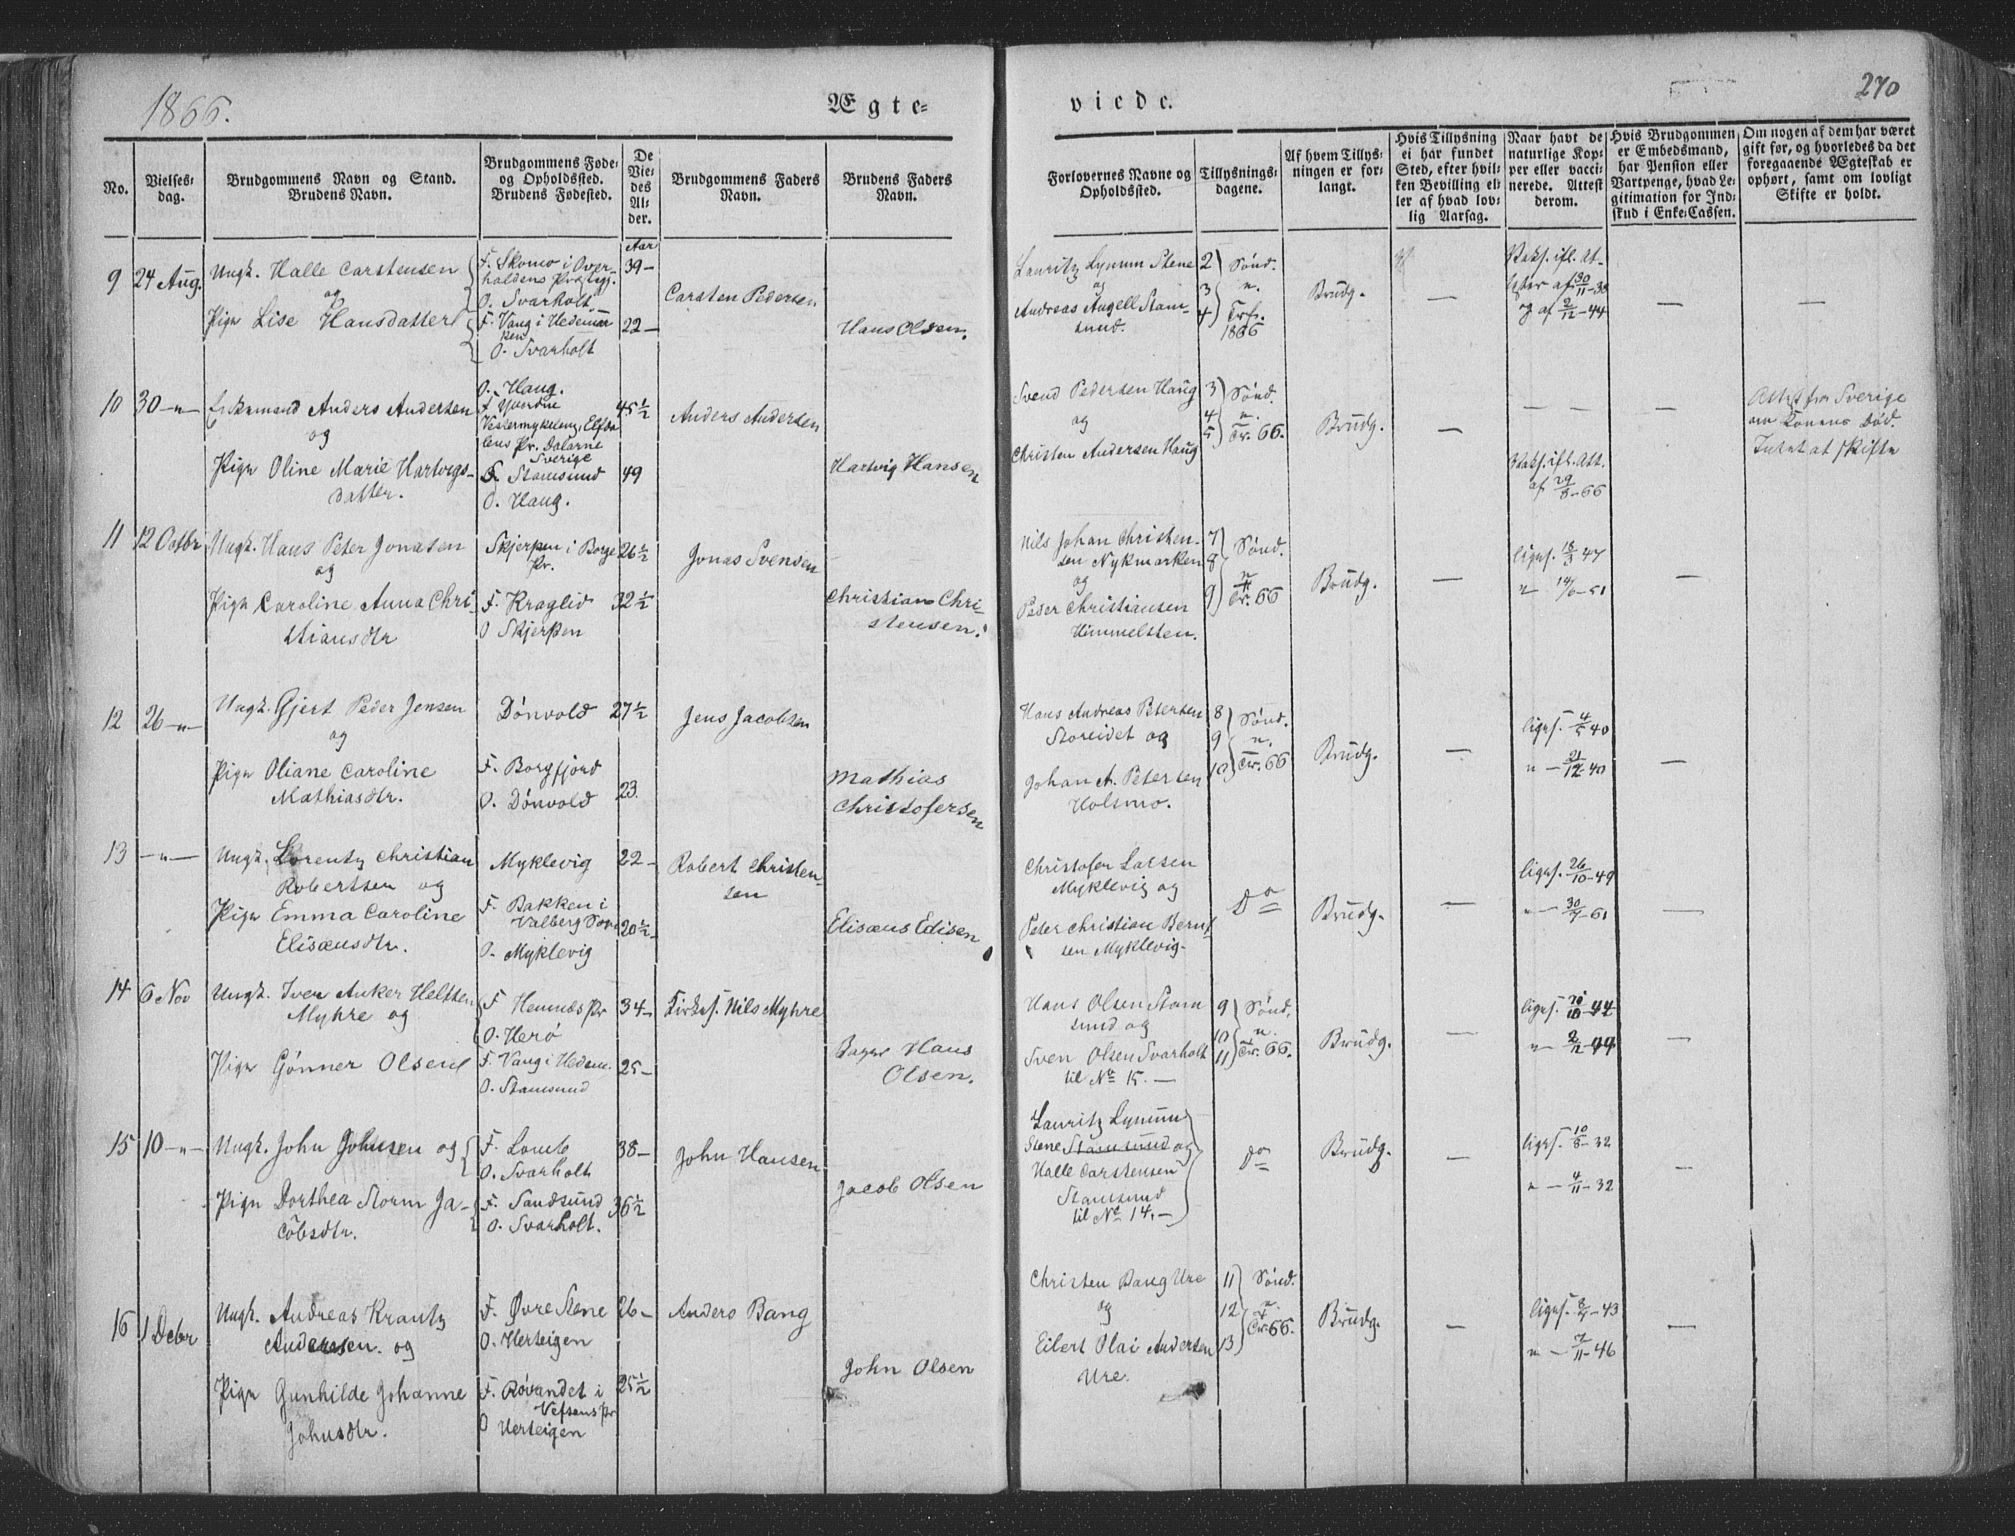 1866.
Ægte-
viede.
270
No.
Vielses-
dag.
Brudgommens Navn og Stand.
Brudens Navn.
Brudgommens Føde-
og Opholdssted.
Brudens Fødested.
De
Vie-
des
Al-
der.
Brudgommens Faders
Navn.
Brudens Faders
Navn.
Forlovernes Navne og
Opholdssted.
Tillysnings-
dagene.
Af hvem Tillys-
ningen er for-
langt.
Hvis Tillysning
ei har fundet
Sted, efter hvil-
ken Bevilling el-
ler af hvad lov-
lig Aarsag.
Naar havt de
naturlige Kop-
per eller vacci-
nerede. Attest
derom.
Hvis Brudgommen
er Embedsmand,
har Pension eller
Vartpenge, hvad Le-
gitimation for Ind-
skud i Enke-Cassen.
Om nogen af dem har været
gift før, og hvorledes da det
foregaaende Ægteskab er
ophørt, samt om lovligt
Skifte er holdt.
9 24 Aug.
Ungk. Halle Carstensen
og
Pige Lise Hansdatter
F. Skomo i Over-
haldens Prgj.
O. Svarholt
F. Vang i Hedemar
ken
O. Svarholt
Aar
39 —
22 —
Carsten Pedersen
Hans Olsen.
Lauritz Lynum Stene
og
Andreas Angell Stam-
sund.
2
3
4
Sønd.
e.
Trf.
1866
Brudg.
—
Vaks. ifl. At-
tester af 30/11-38
og af 2/12-44
—
—
10 30 -"-
Enkemand Anders Andersen
og
Pige Oline Marie Hartvigs-
datter.
O. Haug.
Vestermykeleng, Elfda
lens Pr. Dalarne
Sverige
F. Stamsund
O. Haug.
45 1/2
49
Anders Andersen
Hartvig Hansen
Svend Pedersen Haug
og
Christen Andersen Haug
3
4
5
Sønd.
e.
Tr. 66.
Brudg.
—
— —
Vaks. ifl. Att.
af 29/8-66
Attest fra Sverige
om Konens Død.
Intet at skifte
11 12 Octbr
Ungk. Hans Peter Jonasen
og
Pige Caroline Anna Chri-
stiansdtr
Skjerpen i Borge
Pr.
F. Kraglid
O. Skjerpen
26 1/2
32 1/2
Jonas Svensen
Christian Chri-
stensen.
Nils Johan Christen-
sen Nykmarken
og
Peder Christiansen
Himmelsten.
7
8
9
Sønd.
e
Tr. 66
Brudg.
—
liges. 18/3 47
" 14/6-51
—
12 26 -"-
Ungk. Gjert Peder Jensen
og
Pige Oliane Caroline
Mathiasdtr.
Dønvold
F. Borgfjord
O. Dønvold
27 1/2
23.
Jens Jacobsen
Mathias
Christofersen
Hans Andreas Petersen
Storeidet og
Johan A. Petersen
Holsmo.
8
9
10
Sønd.
e.
Tr. 66
Brudg.
—
ligs. 4/5 40
" - 21/12-40
—
13 -"-
Ungk. Lorentz Christian
Robertsen og
Pige Emma Caroline
Elisæusdtr.
Myklevig
F. Bakken i
Valberg Sovn
O. Myklevig
22 —
20 1/2 -
Robert Christen-
sen
Elisæus Edisen
Christofer Larsen
Myklevig og
Peter Christian Bernt
sen Myklevig.
Do
Brudg.
—
ligs. 26/10-49
" - 30/7-61
—
14 6 Nov
Ungk. Iver Anker Heltzen
Myhre og
Pige Gønner Olsen
F. Hemnæs Pr
O. Herø
F. Vang i Hedem.
O. Stamsund
34 —
25 —
Kirkes. Nils Myhre
Hans
Olsen.
Hans Olsen Stam
sund og
Sven Olsen Svarholt
til No 15. —
9
10
11
Sønd.
e.
Tr. 66.
Brudg.
—
ligs. 20/10-44
" - 2/12-44
—
15 10 -"-
Ungk. John Johnsen og
Pige Dorthea Storm Ja-
cobsdtr.
F. Lomb
O. Svarholt
F. Sandsund
O. Svarholt.
38 —
36 1/2
John Hansen
Jacob Olsen
Lauritz Lynum
Stene Stamsund og
Halle Carstensen
Stamsund
til No 14. —
Do
Brudg.
—
ligs. 10/8-32
" - 4/11-32
—
16 1 Debr
Ungk. Andreas Krantz
Anderssen. og
Pige Gunhilde Johanne
Johnsdtr.
F. Øvre Stene
O. Herteigen
F. Røvandet i
Vefsens Pr
O Herteigen
26 —
25 1/2
Anders Bang
John Olsen
Christen Bang Ure
og
Eilert Olai Andersen
Ure.
11
12
13
Sønd.
e.
Tr. 66.
Brudg.
—
ligs. 8/7-43
" - 7/11-46
—